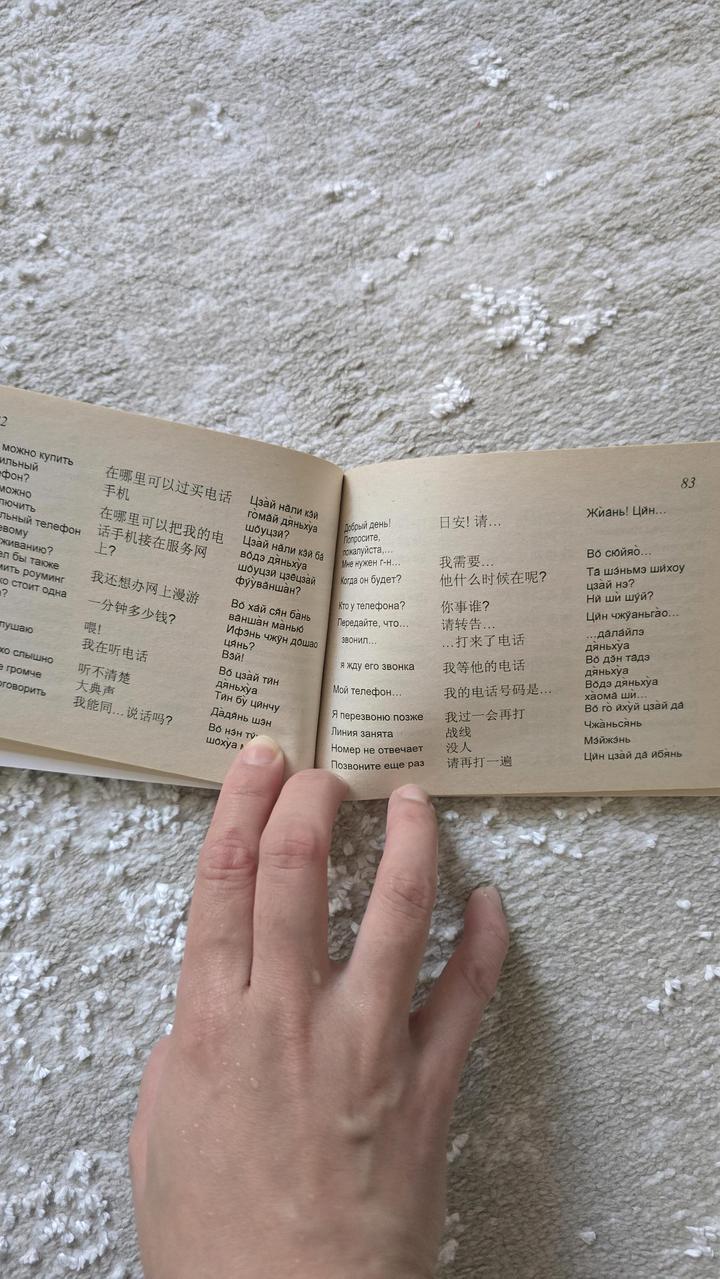 2
можно купить
ильный
ефон?
можно
лючить
льный телефон
евому
живанию?
ел бы также
мить роуминг
ко стоит одна
а?
лушаю
хо слышно
е громче
оговорить
在哪里可以过买电话
手机
在哪里可以把我的电
话手机接在服务网
上?
我还想办网上漫游
一分钟多少钱?
喂!
我在听电话
听不清楚
大典声
我能同…说话吗?
Цзàй нǎли кэ̌й
гòмǎй дяньхуà
шо̌уцзи?
Цзàй нǎли кэ̌й бǎ
во̌дэ дяньхуà
шо̌уцзи цзецзàй
фýувàншàн?
Во̌ хáй ся̌н бàнь
вàншàн мàнью
Ифэ̄нь чжӯн до̄шао
ця́нь?
Вэ́й!
Во̌ цзàй тӣн
дяньхуà
Тӣн бу цинчу
Дàдя̌нь шэ̄н
Во̌ нэ́н
83
Добрый день!
Попросите,
пожалуйста,…
Мне нужен г-н…
Когда он будет?
Кто у телефона?
Передайте, что…
звонил…
я жду его звонка
Мой телефон…
Я перезвоню позже
Линия занята
Номер не отвечает
Позвоните еще раз
日安! 请…
我需要…
他什么时候在呢?
你事谁?
请转告…
…打来了电话
我等他的电话
我的电话号码是…
我过一会再打
战线
没人
请再打一遍
Жѝāнь! Цӣн…
Во̌ сюйя́о…
Тā шэ́ньмэ ши́хоу
цзàй нэ?
Нӣ шѝ шу́й?
Цӣн чжуаньгàо…
…дǎлáйлэ
дяньхуà
Во̌ дэ̌н тāдэ
дяньхуà
Во̌дэ дяньхуà
хаомǎ ши…
Во̌ гò йхуй цзàй дǎ
Чжàньсянь
Мэ́йжэ́нь
Цӣн цзàй дǎ ибя́нь